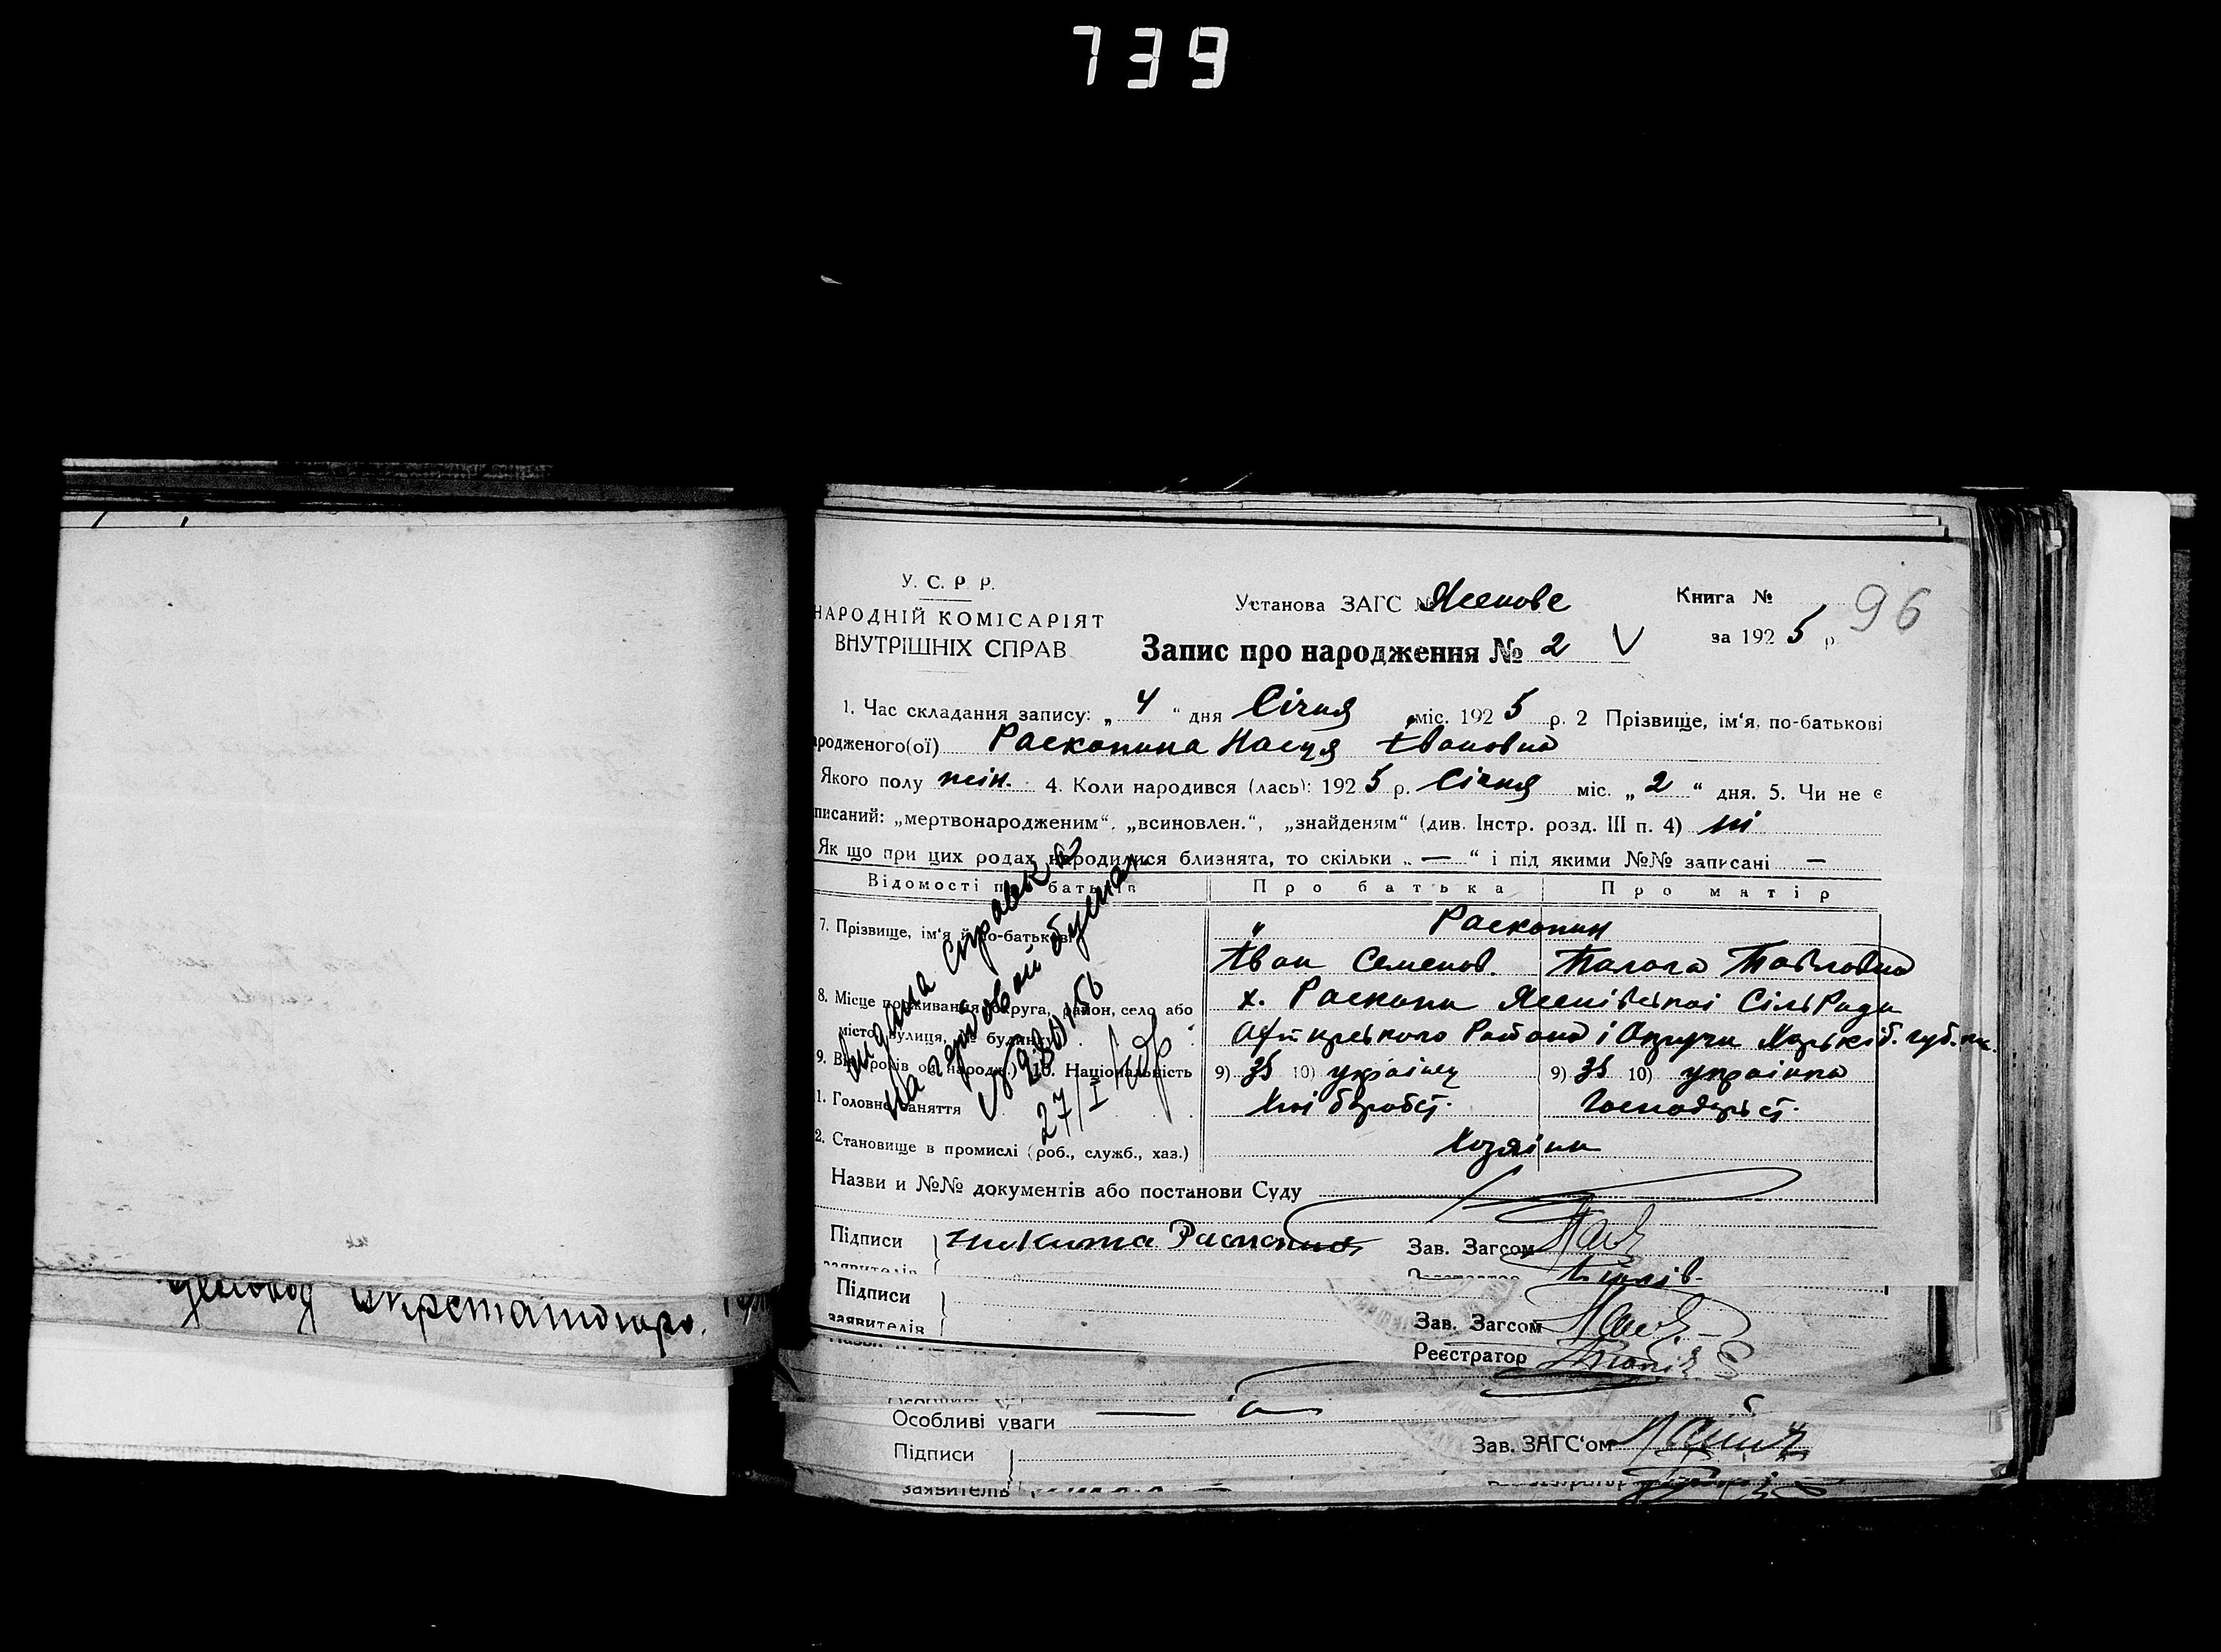 739
У. С. Р. Р.
НАРОДНІЙ КОМІСАРІЯТ
ВНУТРІШНІХ СПРАВ
Установа ЗАГС № Ясенове
Книга №
96
за 1925 р
Запис про народження № 2 V
1. Час складання запису: „ 4 “ дня Січня міс. 1925 р. 2 Прізвище, ім‘я, по-батькові
ародженого(ої) Расконина Насця Івановна
Якого полу жін. 4. Коли народився (лась): 1925 р. Січня міс. „ 2 “ дня. 5. Чи не є
писаний: „мертвонародженим“, „всиновлен.“, „знайденям“ (див. Інстр. розд. III п. 4) ні
Як що при цих родах народилися близнята, то скільки „ — “ і під якими №№ записані —
Відомості про батьків Про батька Про матір
7. Прізвище, ім‘я й по-батькові „ Расконин
Іван Семенов. Палага Павловна
8. Місце проживання (округа, район, село або х. Раскопи Ясенівської СільРади
місто, вулиця, № будинку) Району і Округи Харьків. губ.
9. Вік (років од народж.) 10. Національність 9) 35 10) українец 9) 35 10) українка
1. Головне заняття Хліборобст. Господарьст.
2. Становище в промислі (роб., служб., хаз.) Хозяїин
Видана справка
на гербовой бумаге
27/I
Назви и №№ документів або постанови Суду
Підписи Никита Расконин Зав. Загсом
Підписи
заявителів
Зав. Загсом
Реєстратор
Особливі уваги —
Підписи
Зав. ЗАГС‘ом
заявителів